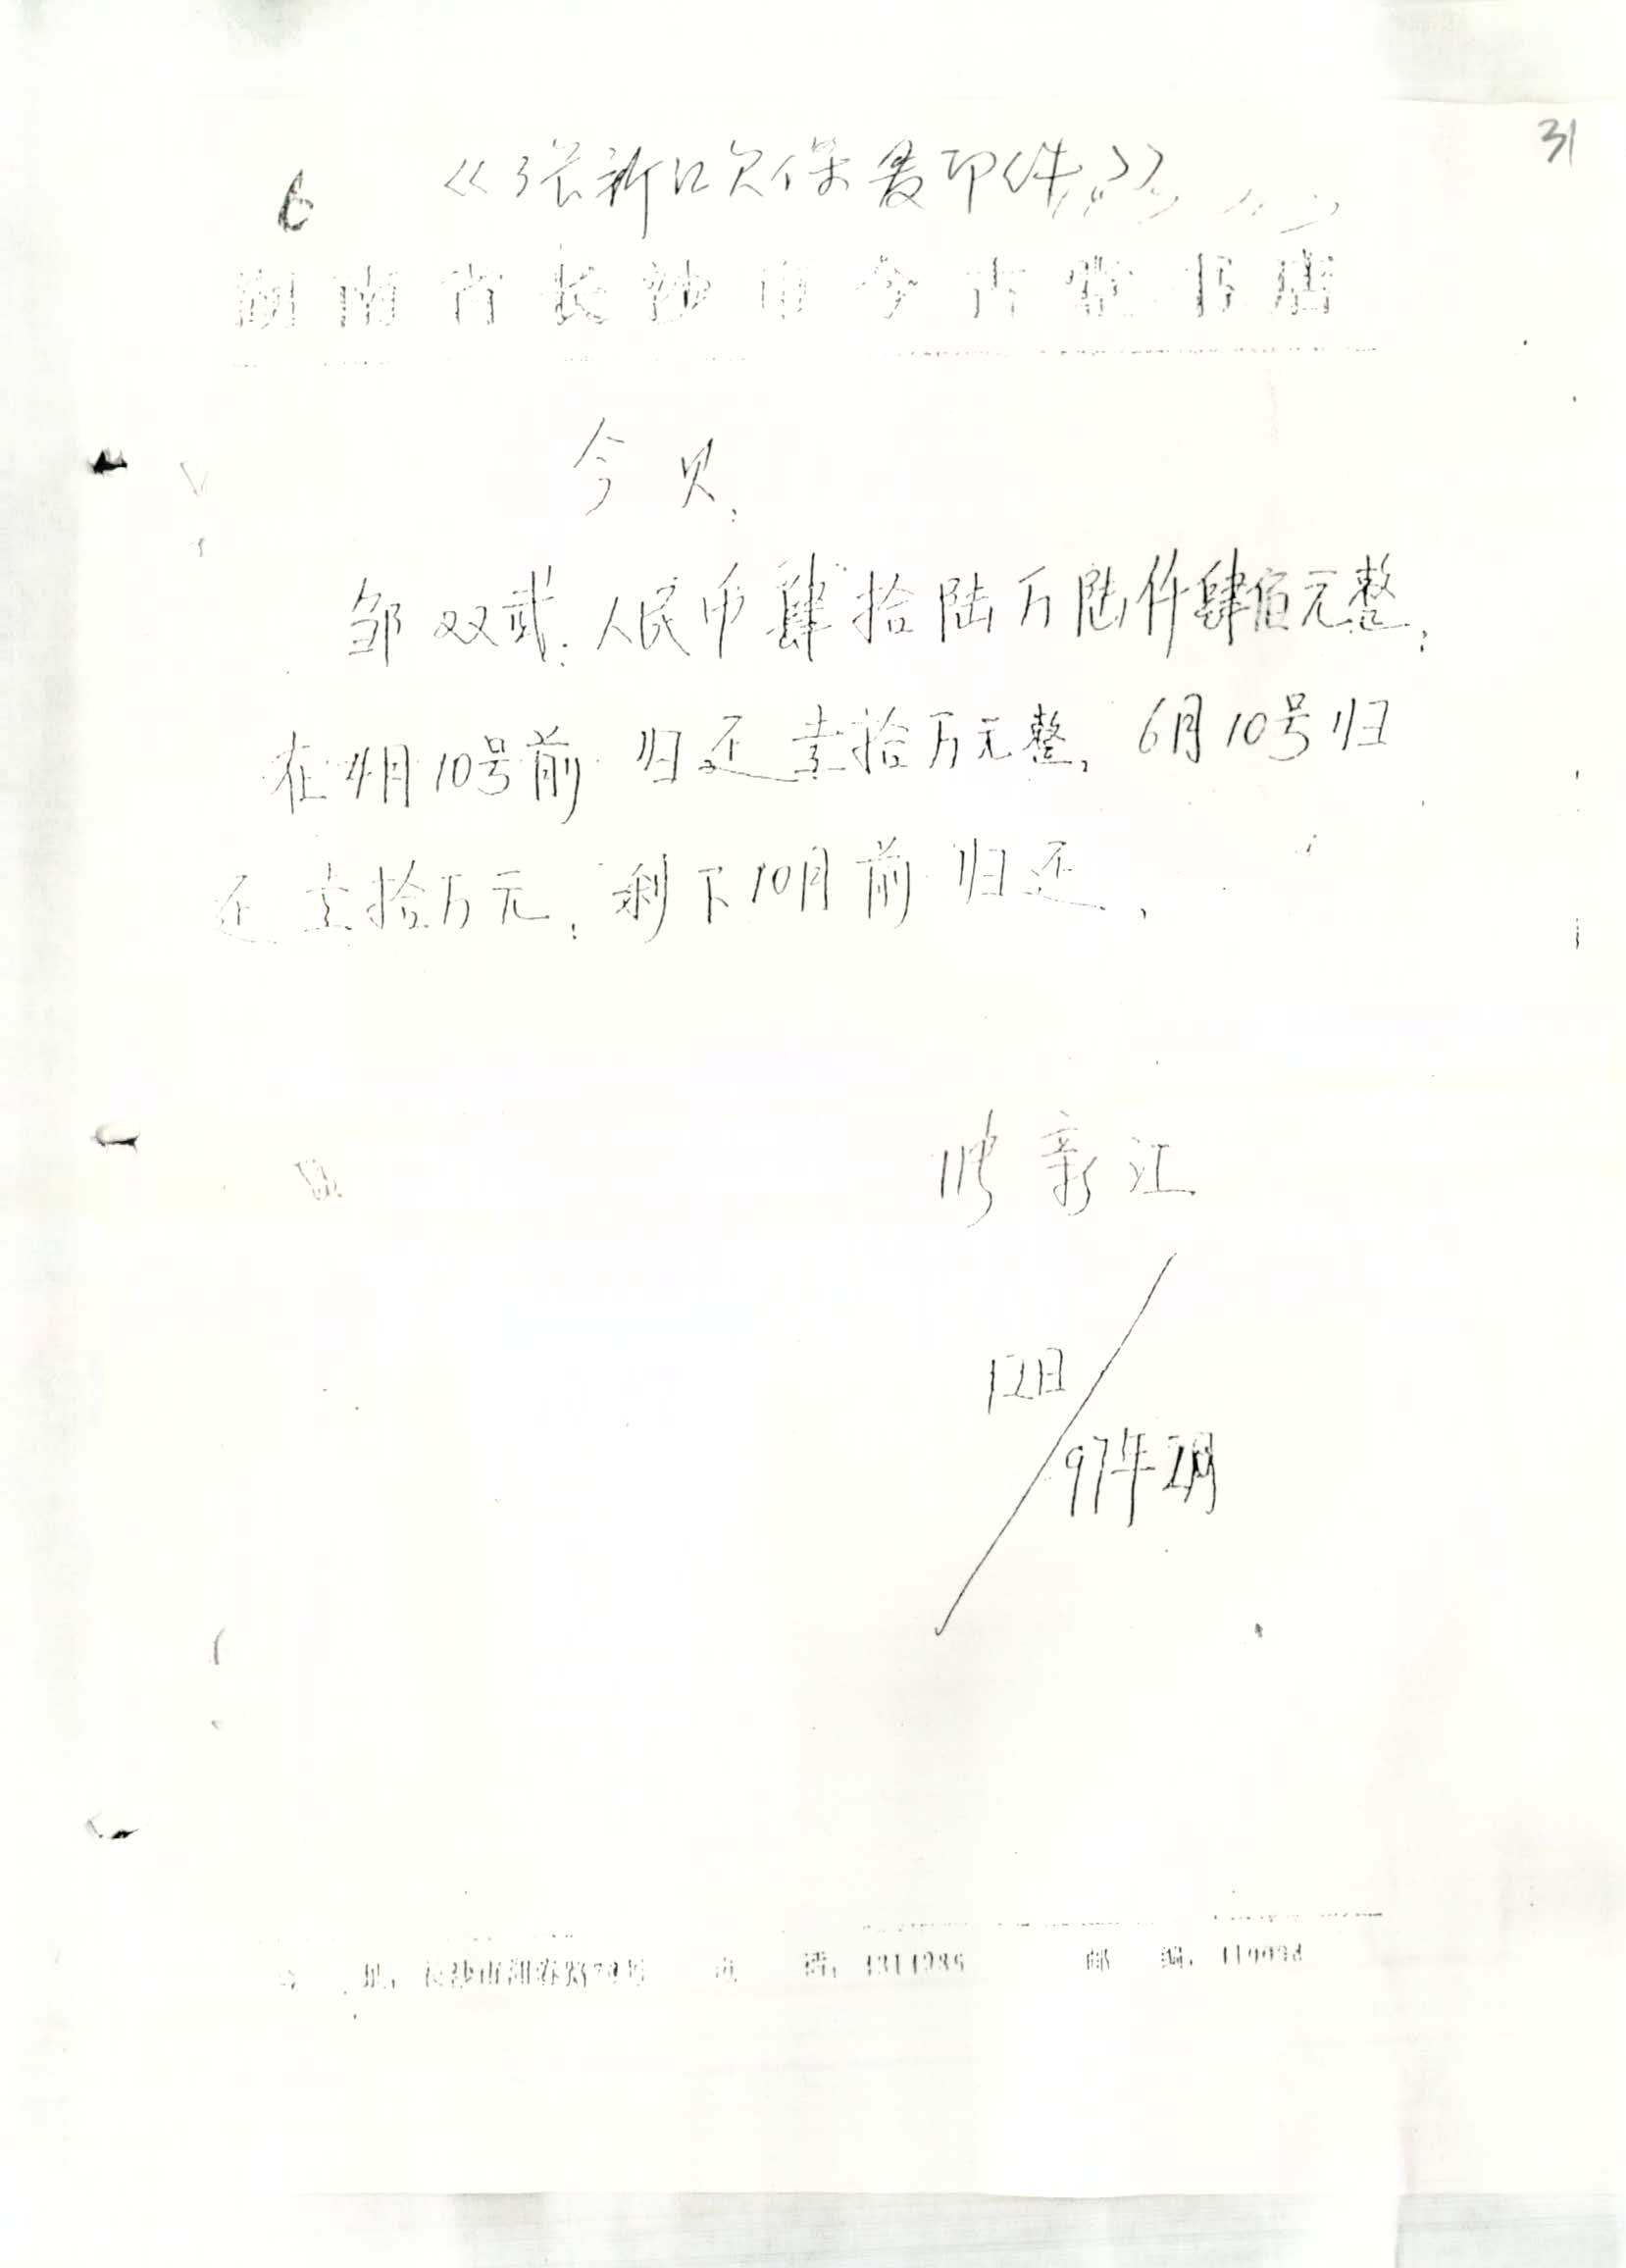 31
6
《张新江欠保复印件》
湖南省长沙市今古堂书店
今欠,
邹双武:人民币肆拾陆万陆仟肆佰元整,
在4月10号前归还壹拾万元整,6月10号归
还壹拾万元,剩下10月前归还,
新江
12日
97年2月
地: 长沙市 路79号 电 话: 4314985 邮 编: